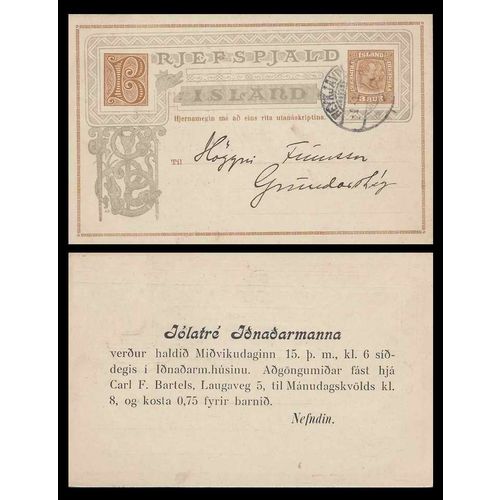 BRJEFSPJALD
ÍSLAND
ÍSLAND
3 AUR
REYKJAVÍK
Hjernamegin má að eins rita utanáskriptina.
Til
Finnsson
Jólatré Iðnaðarmanna
verður haldið Miðvikudaginn 15. þ. m., kl. 6 síð-
degis í Iðnaðarm.húsinu. Aðgöngumiðar fást hjá
Carl F. Bartels, Laugaveg 5, til Mánudagskvölds kl.
8, og kosta 0,75 fyrir barnið.
Nefndin.